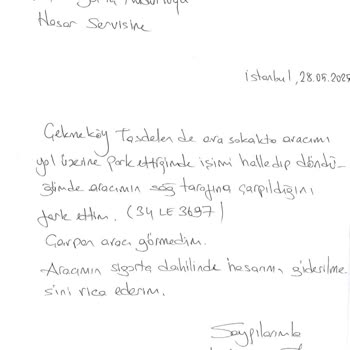 Hasar Servisine
istanbul, 28.05.2025
Çekmeköy Taşdelen de ara sokakta aracımı
yol üzerine park ettiğimde işimi halledip döndü-
ğümde aracımın sağ tarafına çarpıldığını
fark ettim. (34 LE 3697)
Çarpan aracı görmedim.
Aracımın sigorta dahilinde hasarının giderilme
sini rica ederim.
Saygılarımla